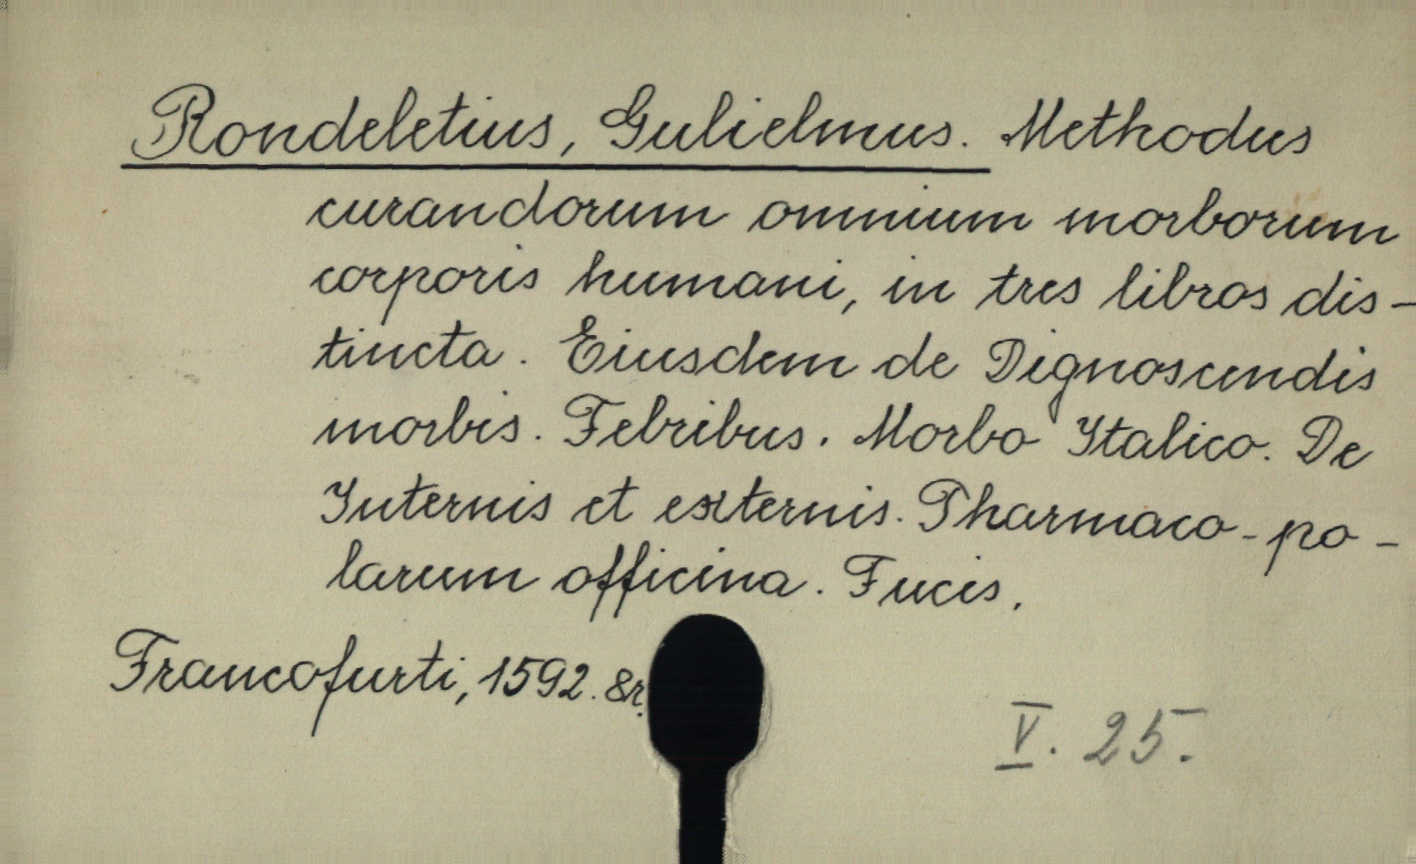 Rondeletius, Gulielmus. Methodus
curandorum omnium morborum
corporis humani, in tres libros dis-
tincta. Eiusdem de Dignoscendis
morbis. Febribus. Morbo Italico. De
Internis et externis. Pharmaco-po-
larum officina. Fucis.
Francofurti, 1592. 8r.
V. 25.